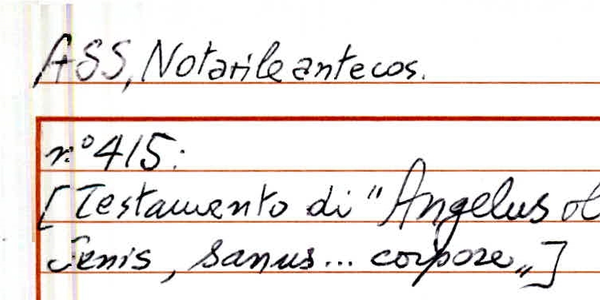 ASS, Notarile antecos.
n.° 415:
[Testamento di "Angelus
Senis, sanus... corpore„]